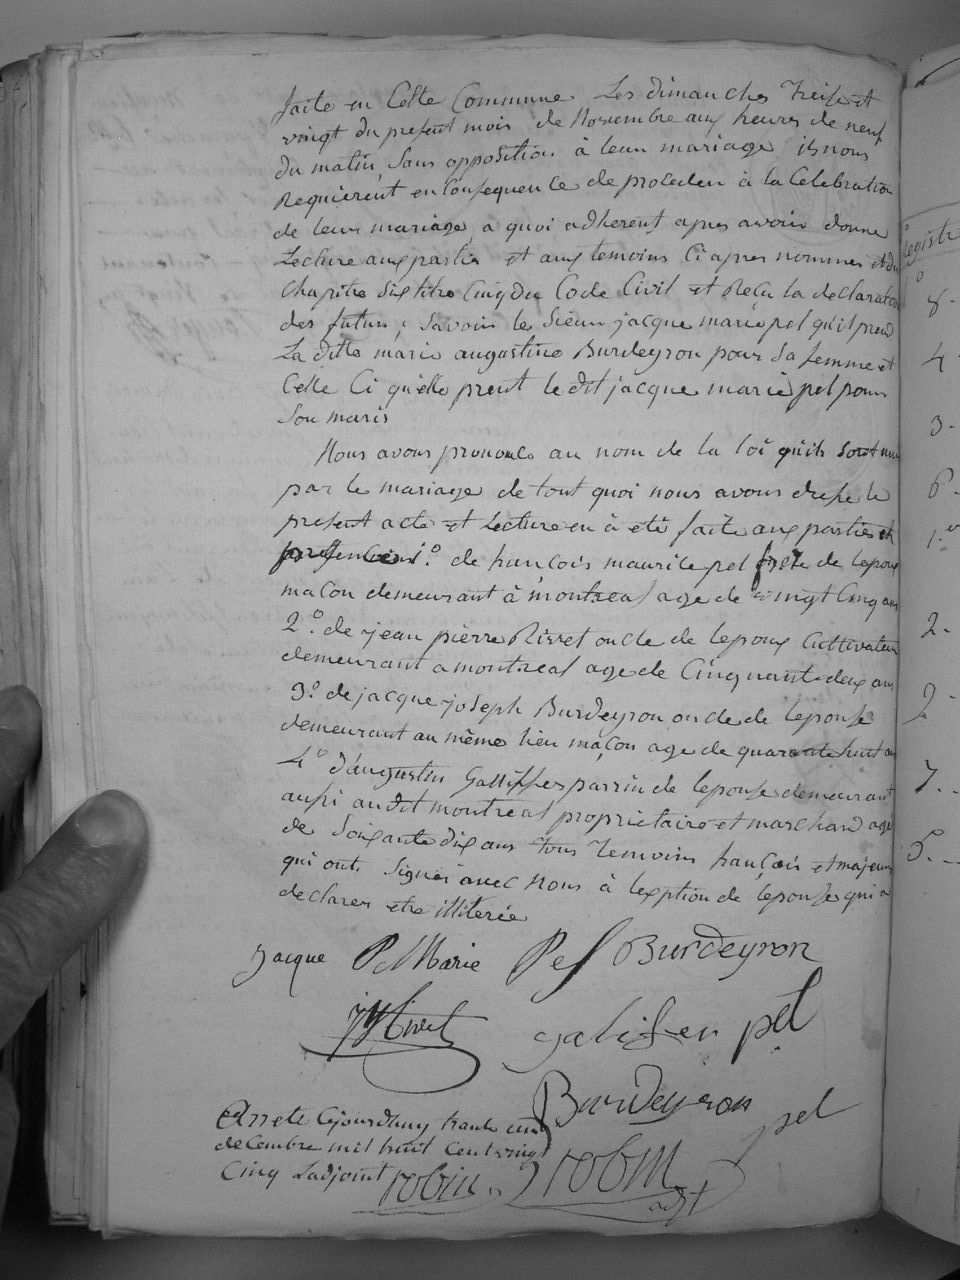 faite en Cette Commune Les dimanches Treise et
vingt du present mois de Novembre aux heures de neuf
du matin, Sans opposition à leur mariage ils nous
Requierent en Consequence de proceder à la Celebration
de leur mariage, a quoi adherent apres avoir donne
Lecture aux partis et aux temoins Ci apres nommes et du
Chapitre six titre Cinq du Code Civil et Reçu la declaration
des futurs, Savoir le Sieur jacque marie pel qu'il prend
La ditte marie augustine Burdeyron pour Sa femme et
Celle Ci qu'elle prent le dit jacque marie pel pour
Son maris
Nous avons prononce au nom de la loi qu'ils sont unis
par le mariage de tout quoi nous avons dresse le
present acte et Lecture en à eté faite aux parties et
1.° de francois maurice pel frere de lepoux
maçon demeurant à montreal age de vingt Cinq ans
2.° de jean pierre Rivet oncle de lepoux Cultivateur
demeurant a montreal age de Cinquante deux ans
3.° de jacque joseph Burdeyron oncle de lepouse
demeurant au même lieu maçon age de quarante huit ans
4.° d'augustin Galliffes parrin de lepouse demeurant
aussi au dit montreal propriétaire et marchand age
de Soixante dix ans tous Temoins francais et majeurs
qui ont Signés avec Nous à lexption de lepouse qui a
declarer etre illiterée
Jacque Pel Marie Pel Burdeyron
galifer pel
Burdeyron pel
Arrete Cejourdhuy trante un
decembre mil huit Cent vingt
Cinq Ladjoint robin robin
adjt
Registre
8 -
4
3 -
6 -
1.er
2 -
2
7 -
5 -